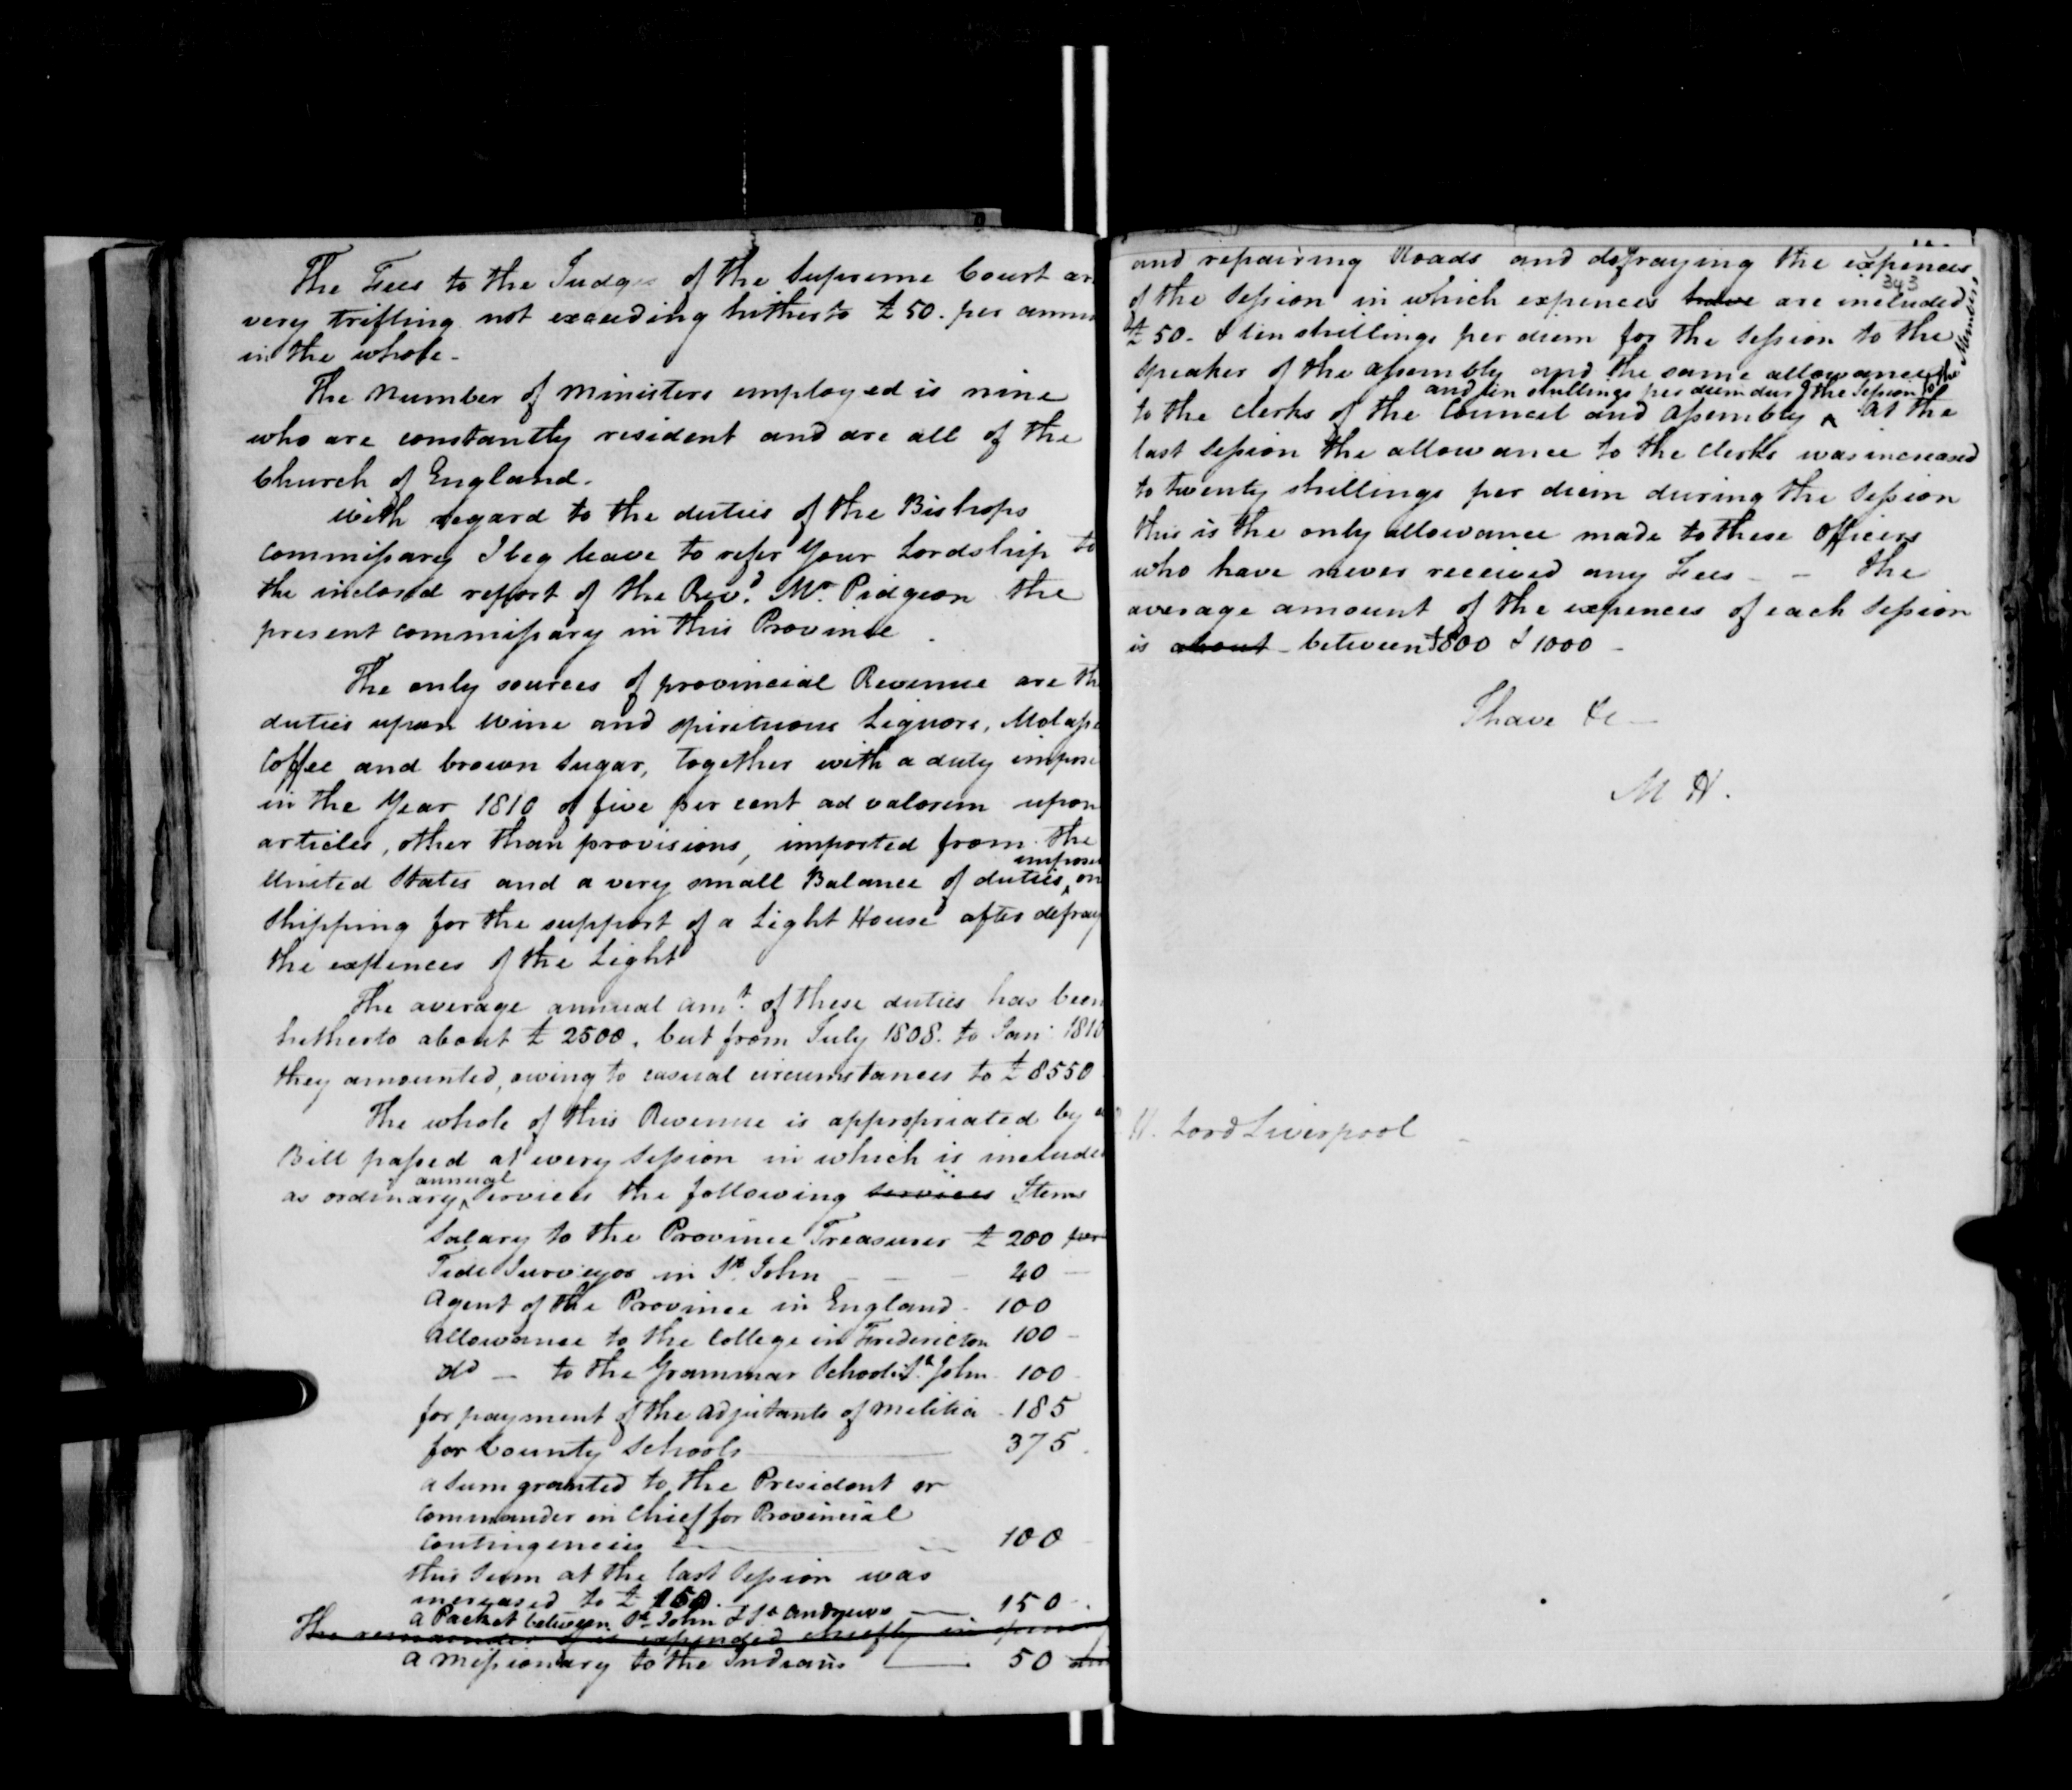 The Fees to the Judges of the Supreme Court ar
very trifling not exceeding hitherto £50. per annu
in the whole.
The number of ministers employed is nine
who are constantly resident and are all of the
Church of England.
With regard to the duties of the Bishops
Commissary I beg leave to refer Your Lordship to
the inclosed report of the Revd. Mr. Pidgeon the
present commissary in this Province.
The only sources of provincial Revenue are th
duties upon Wine and spirituous Liquors, Molass
Coffee and brown Sugar, together with a duty impose
in the Year 1810 of five per cent ad valorem upon
articles, other than provisions, imported from the
impose
United States and a very small Balance of duties ^ on
Shipping for the support of a Light House after defray
the expences of the Light
The average annual amt. of these duties has been
hitherto about £2500, but from July 1808. to Jan: 1810
they amounted, owing to casual circumstances to £8550
The whole of this Revenue is appropriated by a
Bill passed at every Session in which is include
annual
as ordinary ^ services the following services Items
Salary to the Province Treasurer £200 per
Tide Surveyor in St. John 40
Agent of the Province in England 100
Allowance to the College in Fredericton 100
do to the Grammar School St. John 100
for payment of the Adjutants of militia 185
for County Schools 375
a sum granted to the President or
Commander in Chief for Provincial
Contingencies 100
this sum at the last Session was
increased to £150.
a Packet between St. John & St. Andrews 150
The remainder is expended chiefly in
a missionary to the Indians 50
and repairing Roads and defraying the expences
343
of the Session in which expences have are included
£50. & ten shillings per diem for the Session to the
Speaker of the assembly and the same allowance
and ten shillings per diem durg the Session to the Members
to the Clerks of the Council and Assembly ^ At the
last Session the allowance to the Clerks was increased
to twenty shillings per diem during the Session
this is the only allowance made to these Officers
who have never received any Fees - - The
average amount of the expences of each Session
is about between £800 & 1000 -
I have &c -
M H.
H. Lord Liverpool